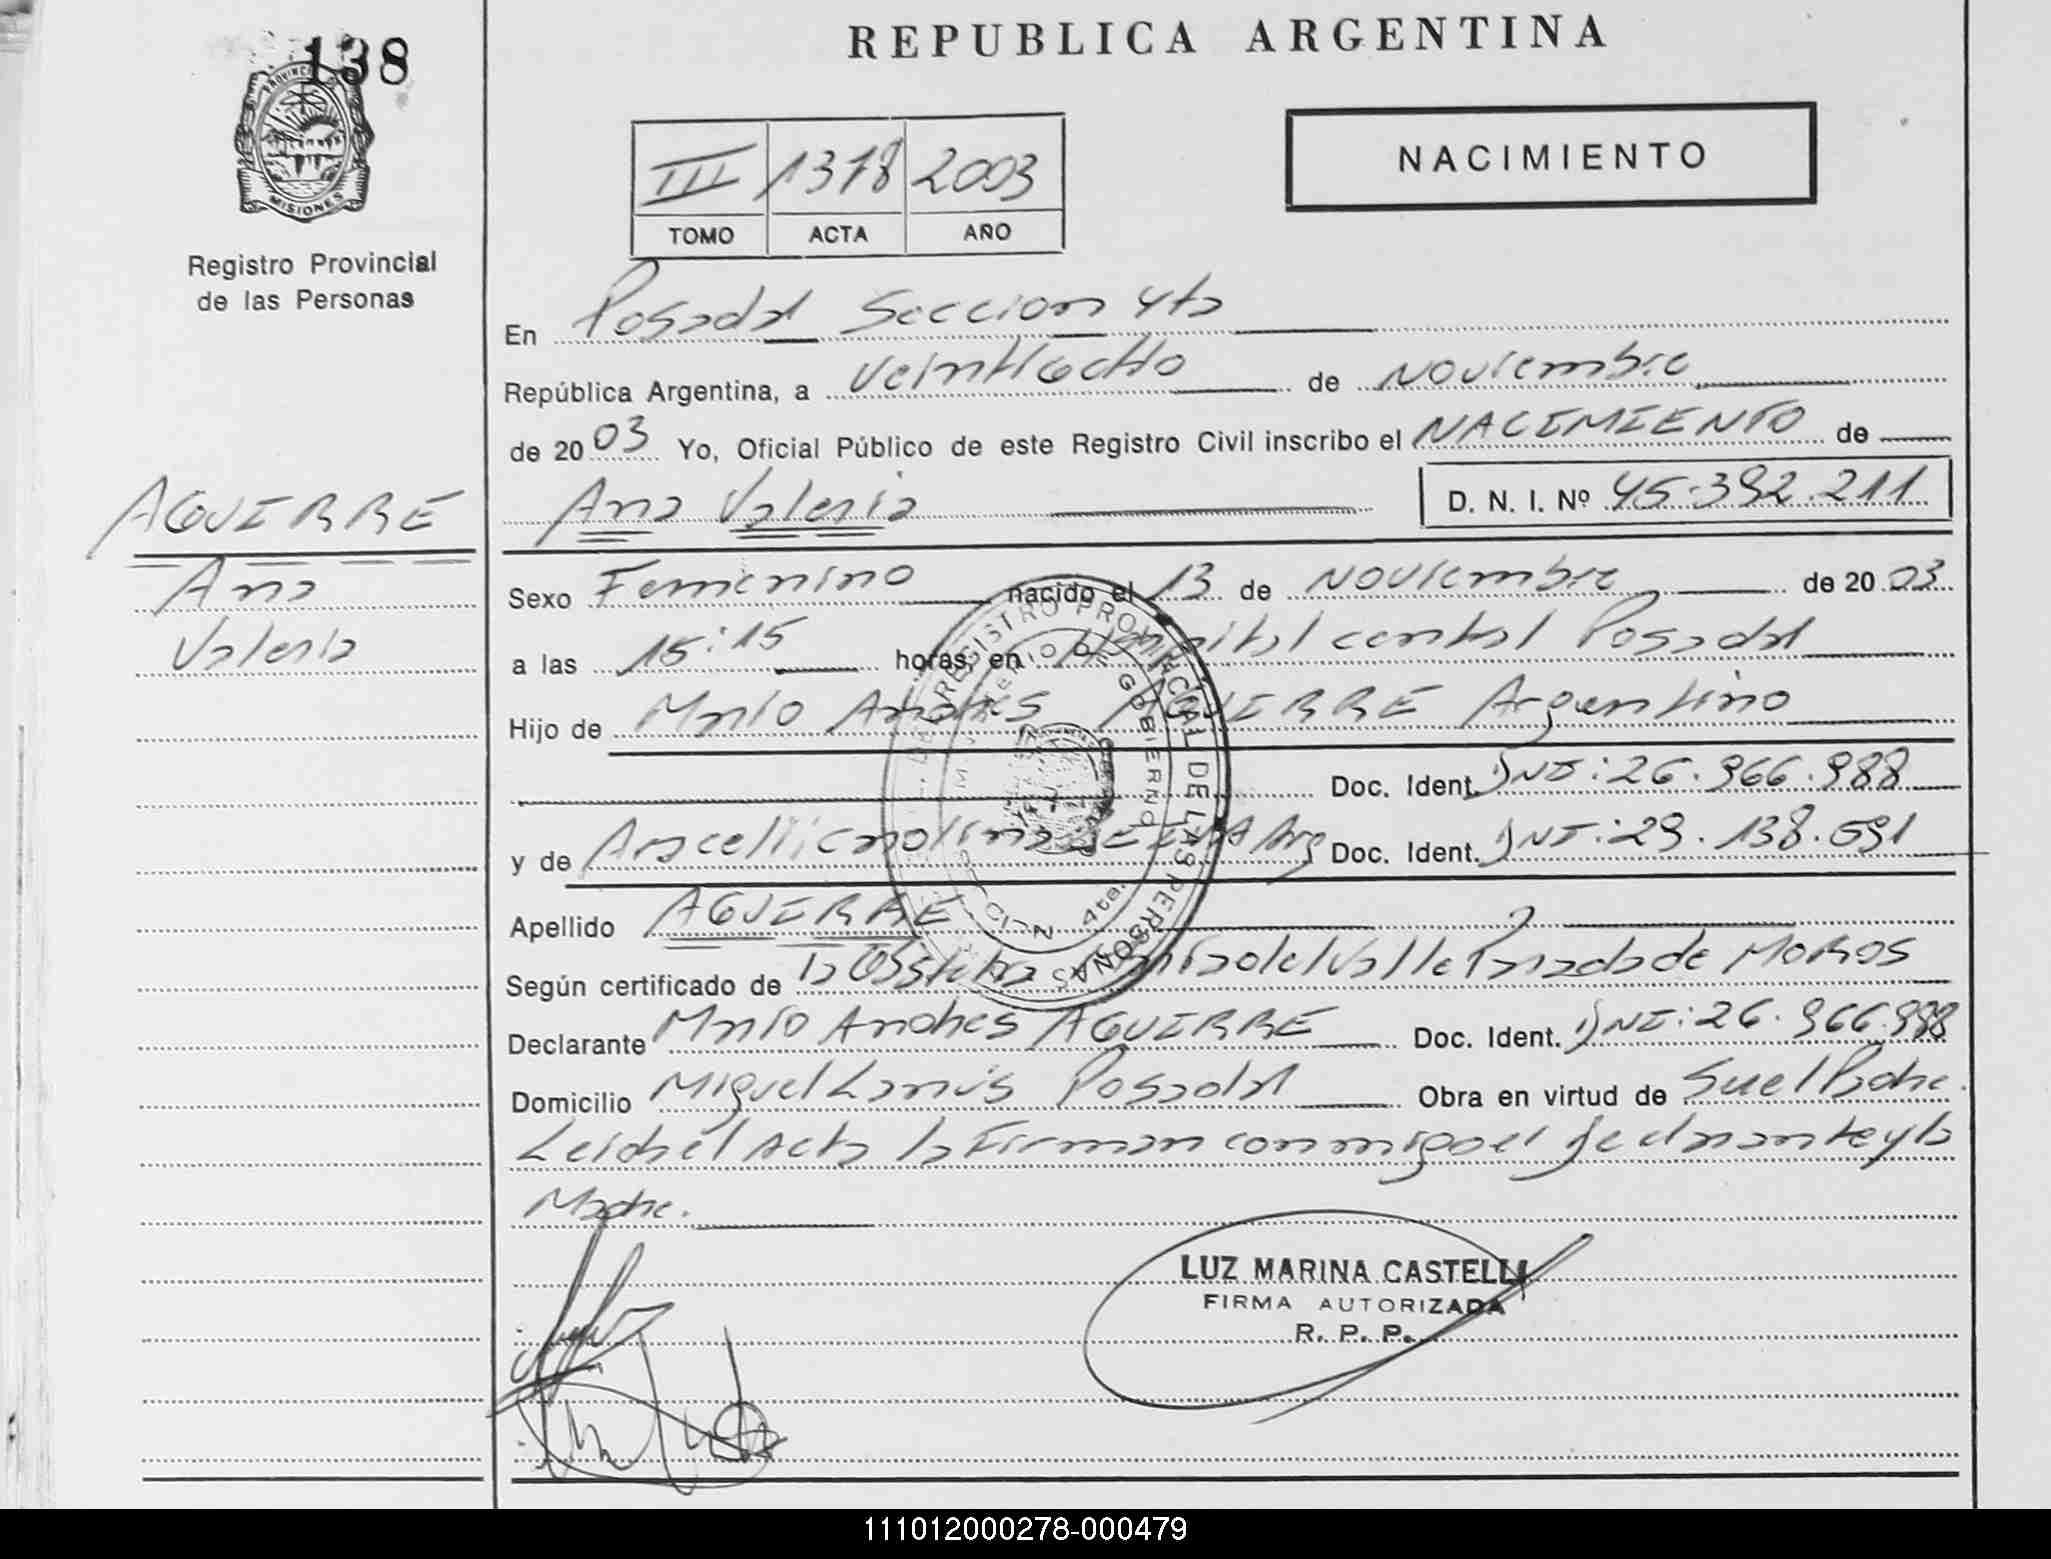 138
REPUBLICA ARGENTINA
PROVINCIA
MISIONES
Registro Provincial
de las Personas
III 1378 2003
TOMO ACTA AÑO
NACIMIENTO
En Posadas Seccion 4ta
República Argentina, a Veintiocho de Noviembre
de 2003 Yo, Oficial Público de este Registro Civil inscribo el NACIMIENTO de
AGUIRRE
Ana
Valeria
Ana Valeria D. N. I. Nº 45.392.211
Sexo Femenino nacido el 13 de Noviembre de 2003
a las 15:15 horas, en Hospital central Posadas
Hijo de Mario Andres AGUIRRE Argentino
Doc. Ident. DNI: 26.966.988
y de Aracelli Arg Doc. Ident. DNI: 29.138.591
Apellido AGUIRRE
Según certificado de la Obstetra del Valle Parada de Moros
Declarante Mario Andres AGUIRRE Doc. Ident. DNI: 26.966.988
Domicilio Miguel Lanús Posadas Obra en virtud de Ser el Padre.
Leida el Acta la Firman conmigo el declarante y la
Madre.
REGISTRO PROVINCIAL DE LAS PERSONAS
GOBIERNO
4ta.
LUZ MARINA CASTELLI
FIRMA AUTORIZADA
R. P. P.
111012000278-000479